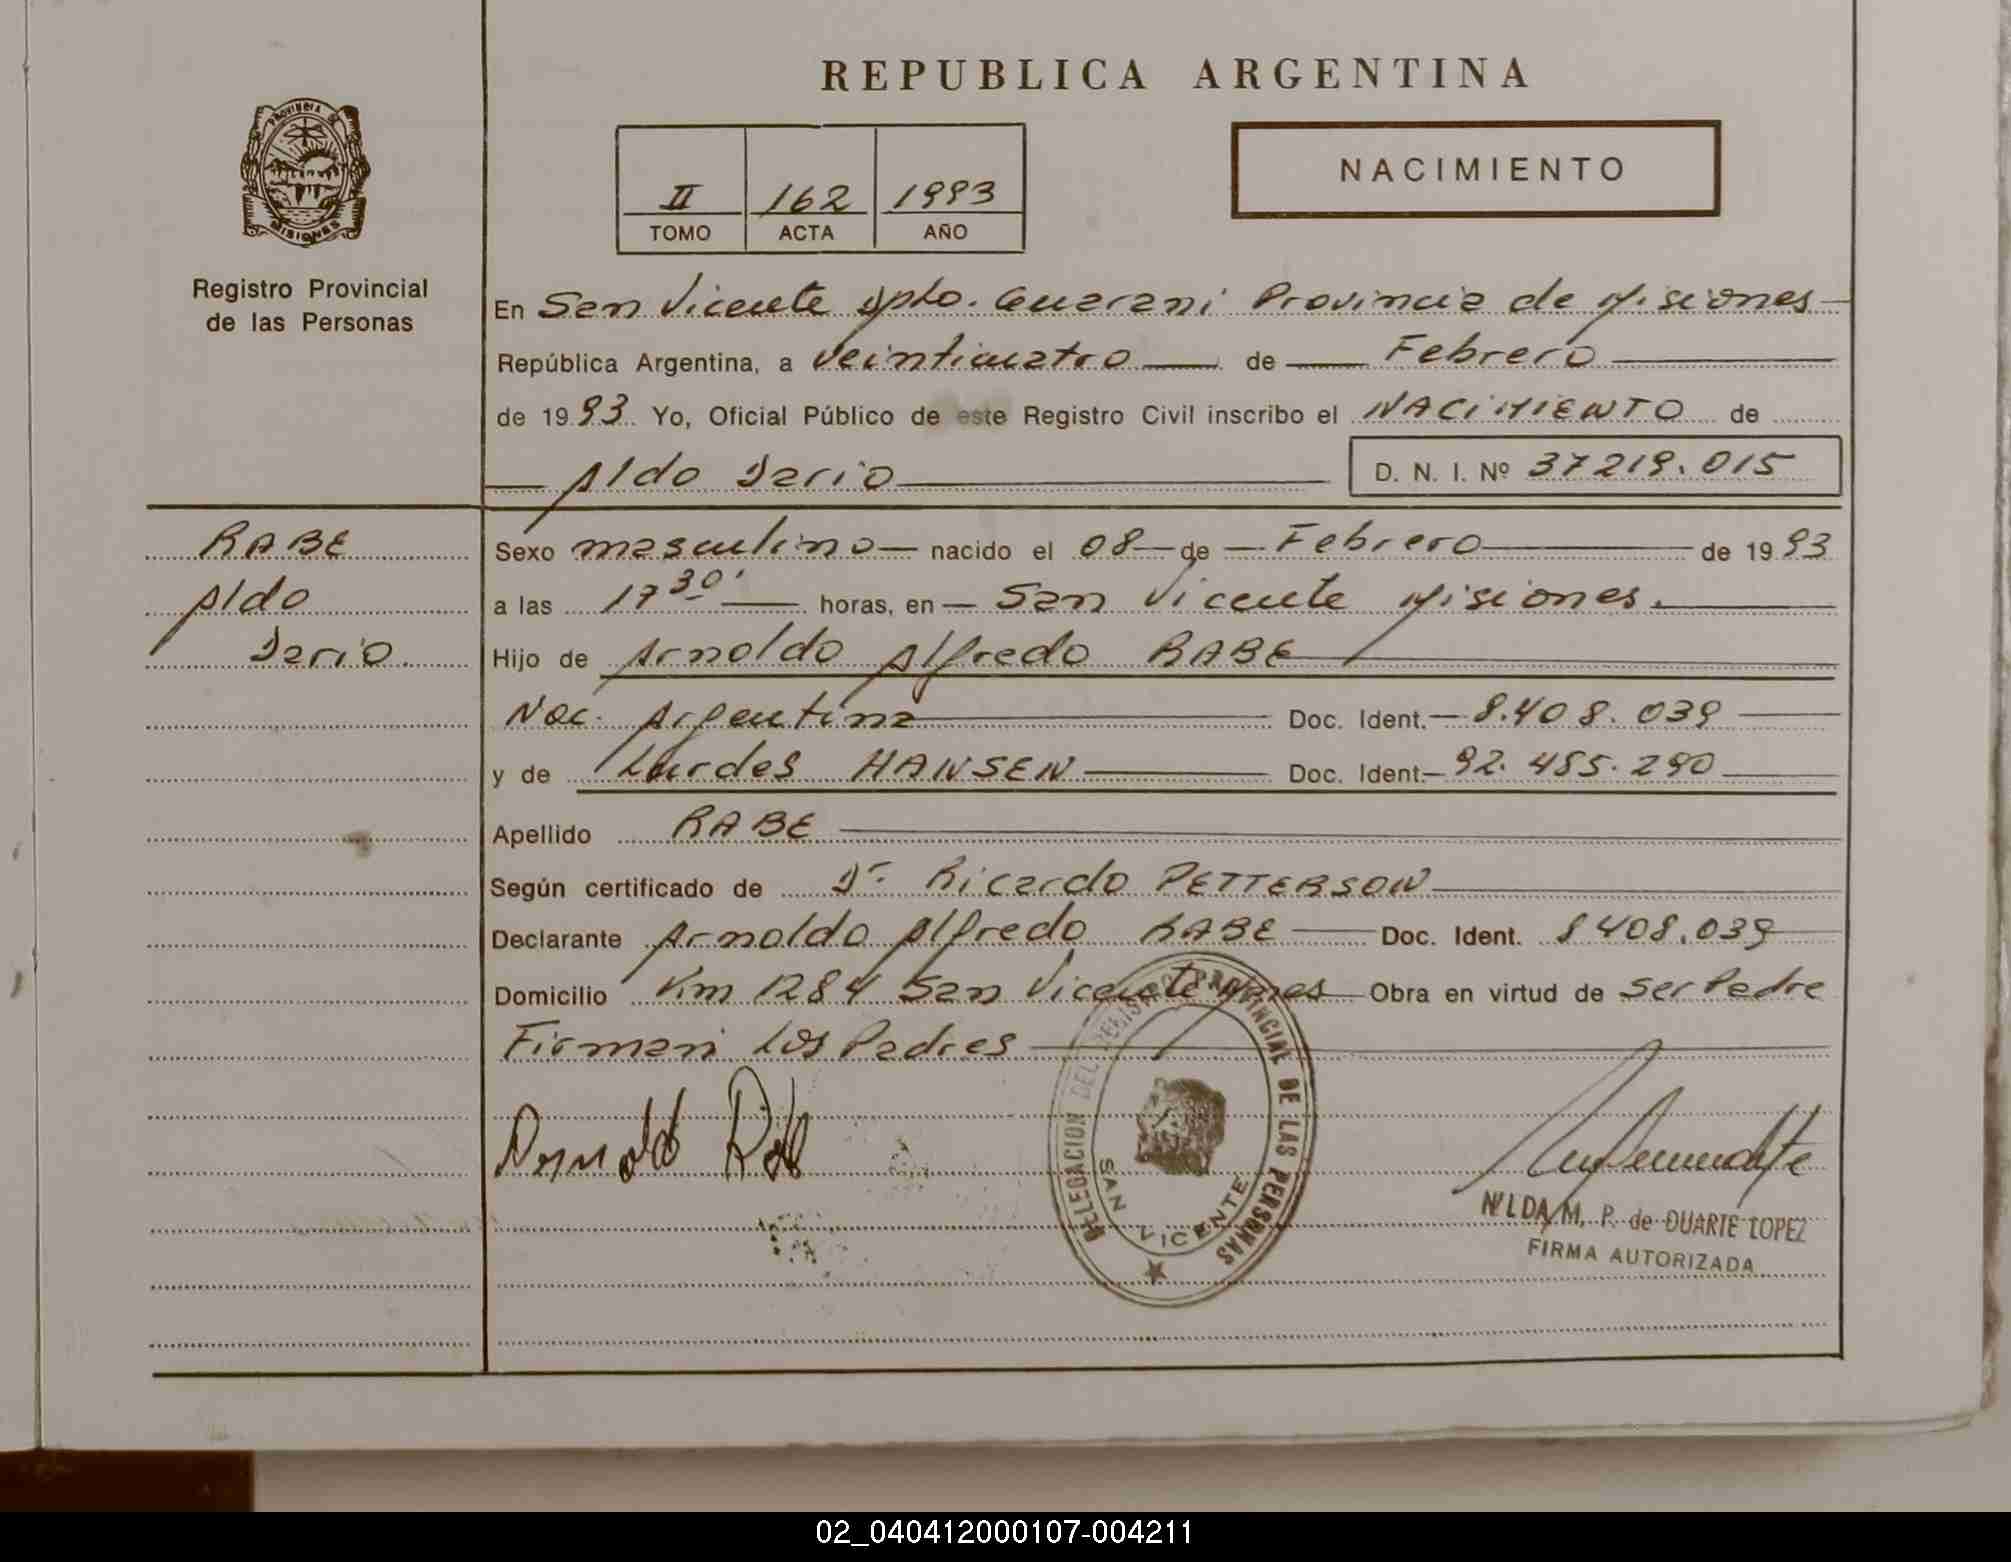 REPUBLICA ARGENTINA
PROVINCIA DE
MISIONES
Registro Provincial
de las Personas
II 162 1993
TOMO ACTA AÑO
NACIMIENTO
En San Vicente Dpto. Guarani Provincia de Misiones
República Argentina, a veinticuatro de Febrero
de 1993 Yo, Oficial Público de este Registro Civil inscribo el NACIMIENTO de
Aldo Dario D. N. I. Nº 37219.015
RABE
Aldo
Dario.
Sexo masculino nacido el 08 de Febrero de 1993
a las 17 30' horas, en San Vicente Misiones.
Hijo de Arnoldo Alfredo RABE
Nac. Argentina Doc. Ident. 8.408.039
y de Lurdes HANSEN Doc. Ident 92.485.290
Apellido RABE
Según certificado de Dr. Ricardo PETTERSON
Declarante Arnoldo Alfredo RABE Doc. Ident. 8408.039
Domicilio Km 1284 San Vicente Mnes Obra en virtud de Ser Padre
Firman Los Padres
DELEGACION DEL REGISTRO PROVINCIAL DE LAS PERSONAS
SAN VICENTE
NILDA M. P. de DUARTE LOPEZ
FIRMA AUTORIZADA
02_040412000107-004211